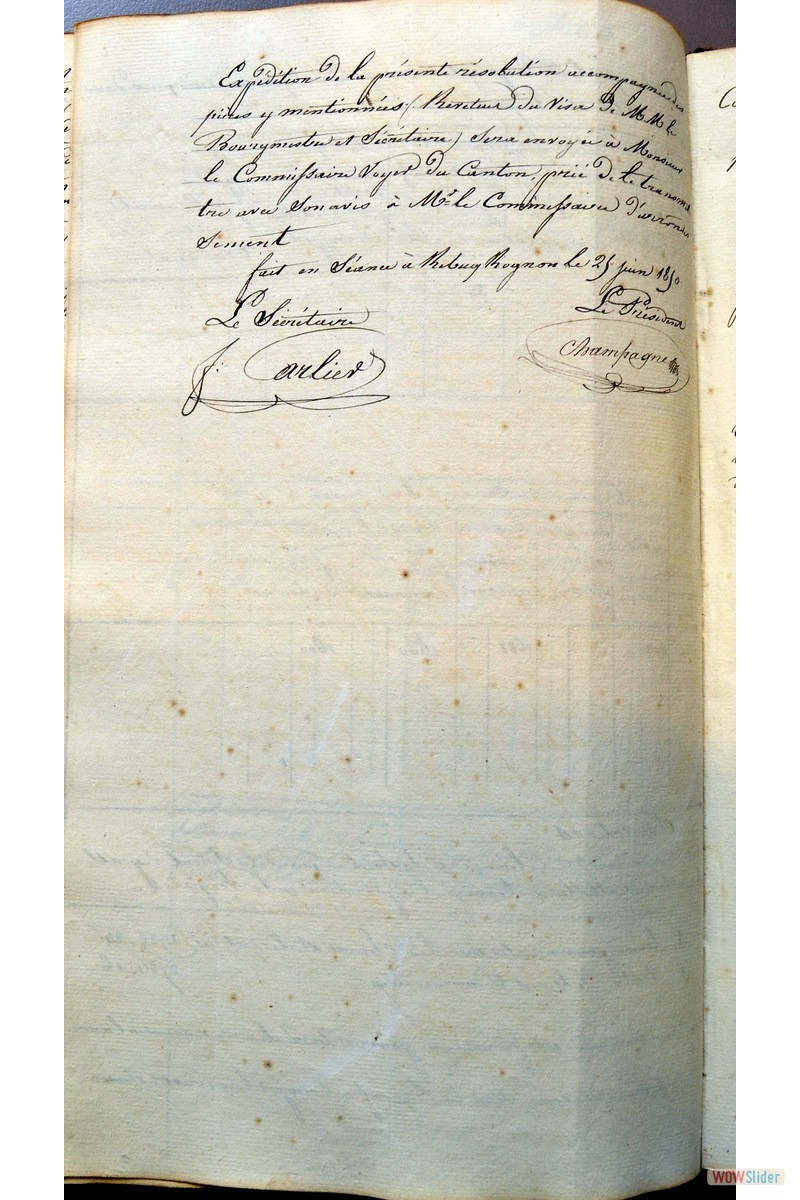 Expédition de la présente résolution accompagnée des
pièces y mentionnées (Revetues du Visa de MM le
Bourgmestre et Sécrétaire) sera envoyée à Monsieur
le Commissaire Voyer du Canton, prié de le transmet
tre avec son avis à Mr. le Commissaire d'arrondis
sement
fait en Séance à Rebecq Rognon le 25 juin 1850
Le Sécrétaire
Le Président
J. Carlier
Champagne
WOWSlider